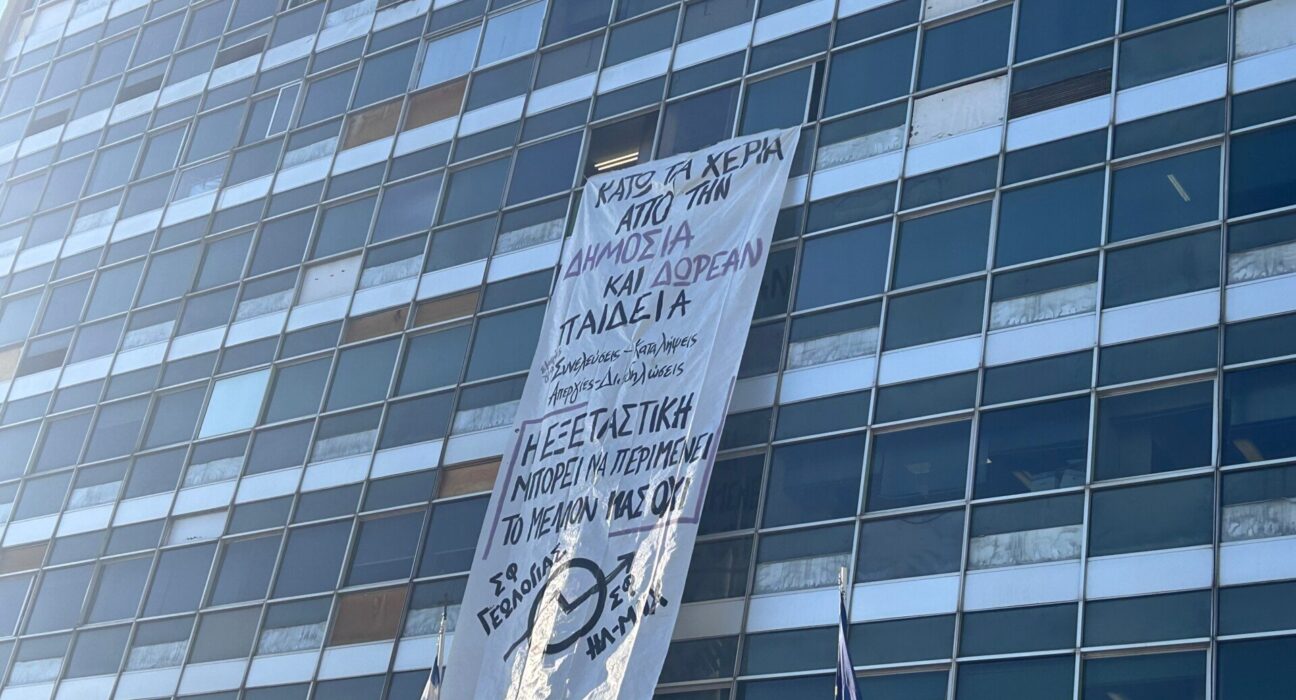 ΚΑΤΩ ΤΑ ΧΕΡΙΑ
ΑΠΟ ΤΗΝ
ΔΗΜΟΣΙΑ
ΚΑΙ ΔΩΡΕΑΝ
ΠΑΙΔΕΙΑ
Συνελεύσεις - Καταλήψεις
Απεργίες - Διαδηλώσεις
Η ΕΞΕΤΑΣΤΙΚΗ
ΜΠΟΡΕΙ ΝΑ ΠΕΡΙΜΕΝΕΙ
ΤΟ ΜΕΛΛΟΝ ΜΑΣ ΟΧΙ
ΣΦ
ΓΕΩΛΟΓΙΑΣ
ΣΦ
ΗΛ-ΜΧ